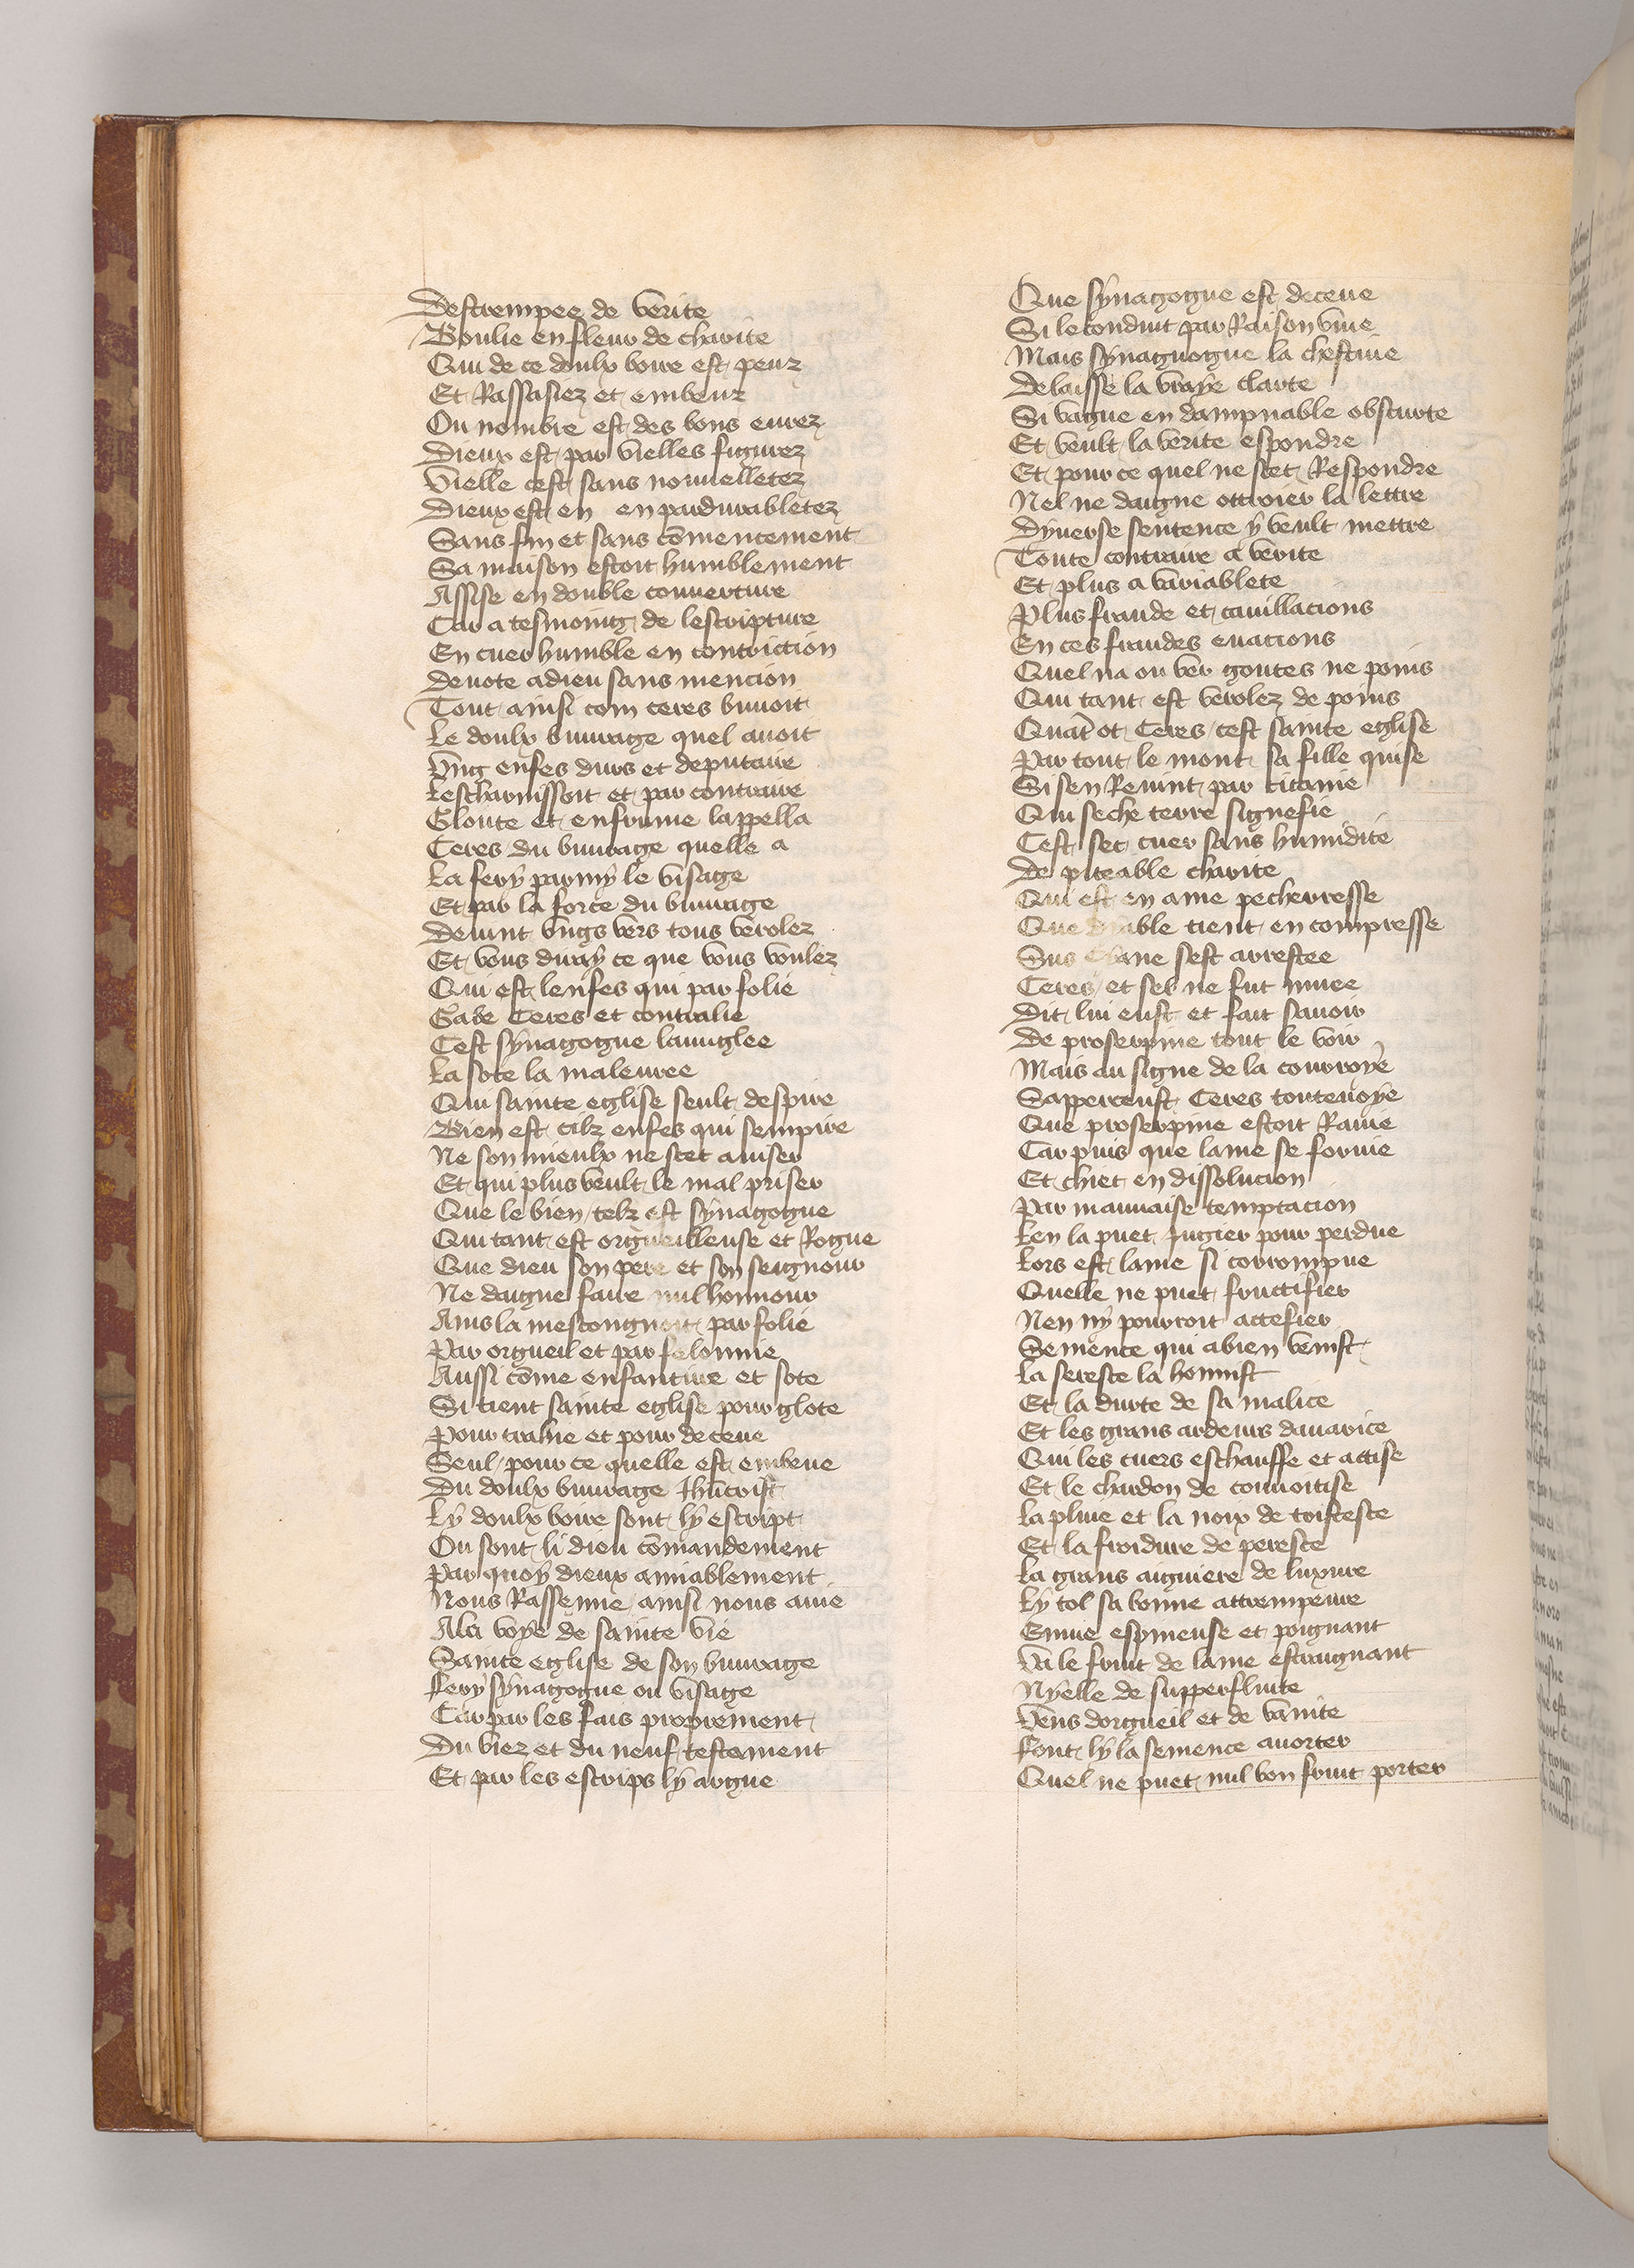 Destrempee de verite
Boulie en fleur de charite
Qui de ce doulx boire est peuz
Et Rassasiez et embeuz
Ou nombre est des bons eurez
Dieux est par vielles figurez
Vielle cest sans nouuelletez
Dieux est en en pardurabletez
Sans fin et sans cōmencement
Sa maison estoit humblement
Assise en double couuerture
Car a tesmoing de lescripture
En cuer humble en contriction
Deuote a dieu sans mencion
Tout ainsi com ceres buuoit
Le doulx buurage quel auoit
Vng enfes durs et deputaire
Lescharnissoit et par contraire
Gloute et enfrume lappella
Ceres du buurage quelle a
La fery parmy le visage
Et par la force du buurage
Deuint vngs vers tous verolez
Et vous diray ce que vous voulez
Qui est lenfes qui par folie
Gabe Ceres et contralie
Cest synagogue lauuglee
La sote la maleuree
Qui sainte eglise seult despire
Bien est cilz enfes qui sempire
Ne son mieulx ne scet auiser
Et qui plus veult le mal priser
Que le bien telz est synagogue
Qui tant est orgueilleuse et Rogue
Que dieu son pere et son seignour
Ne daigne faire nul honnour
Ains la mescongnoit par folie
Par orgueil et par felonnie
Aussi cōme enfantiue et sote
Si tient sainte eglise pour glote
Pour trahie et pour deceue
Seul pour ce quelle est embeue
Du doulx buurage Ihūcrist
Ly doulx boire sont ly escript
Ou sont li dieu cōmandement
Par quoy dieux amiablement
Nous Rassenne ainsi nous auie
A la voye de sainte vie
Sainte eglise de son buurage
Fery synagogue ou visage
Car par les fais proprement
Du viez et du neuf testament
Et par les escrips ly argue
Que synagogue est deceue
Si le conduit par Raison viue
Mais synaguogue la chestiue
Delaisse la vraye clarte
Si vague en dampnable obscurte
Et veult la verite espondre
Et pour ce quel ne scet Respondre
Nel ne daigne ottroier la lettre
Dyuerse sentence y veult mettre
Toute contraire a verite
Et plus a variablete
Plus fraude et cauillacions
En ces fraudes euacions
Quel na ou ver goutes ne poins
Qui tant est verolez de poins
Quāt ot Ceres cest sainte eglise
Par tout le mont sa fille quise
Si sen Reuint par titanie
Qui seche terre signefie
Cest sec cuer sans humidite
De piteable charite
Qui est en ame pecherresse
Que diable tient en compresse
Sus Cyane sest arrestee
Ceres et sel ne fut muee
Dit lui eust et fait sauoir
De proserpine tout le voir
Mais au signe de la courroye
Sapperceust Ceres touteuoye
Que proserpine estoit Rauie
Car puis que lame se foruie
Et chiet en dissolucion
Par mauuaise temptacion
Len la puet Jugier pour perdue
Lors est lame si corrompue
Quelle ne puet fructifier
Nen ny pourroit actefier
Semence qui a bien venist
La sereste la honnist
Et la durte de sa malice
Et les grans ardeurs dauarice
Qui les cuers eschauffe et attise
Et le chardon de conuoitise
La pluie et la noix de tristeste
Et la froidure de pereste
La grans aiguiere de luxure
Ly tol sa bonne attrempeure
Enuie espineuse et poignant
Va le fruit de lame estraignant
Nyelle de supperfluite
Vens dorgueil et de vanite
Font ly la semence auorter
Quel ne puet nul bon fruit porter